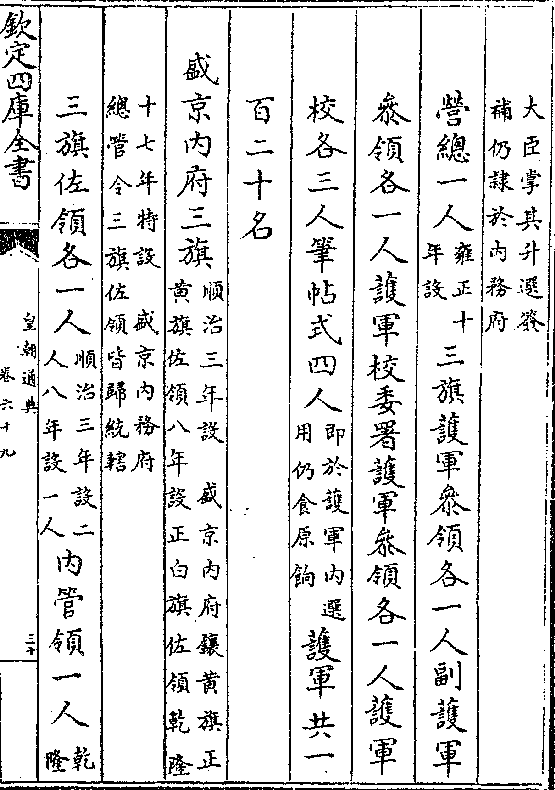 大臣掌其升選簽
補仍隷於内務府
營總一人雍正十年設三旗護軍叅領各一人副護軍
叅領各一人護軍校委署護軍叅領各一人護軍
校各三人筆帖式四人即於護軍内選用仍食原餉護軍共一
百二十名
盛京内府三旗順治三年設 盛京内府鑲黄旗正黄旗佐領八年設正白旗佐領乾隆
十七年特設 盛京内務府
總管令三旗佐領皆歸統轄
三旗佐領各一人順治三年設二人八年設一人内管領一人乾隆
欽定四庫全書
皇朝通典
卷六十九